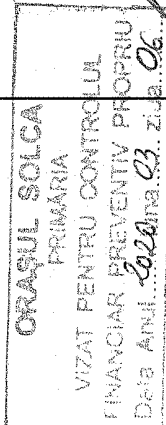 ORAȘUL SOLCA
PRIMĂRIA
VIZAT PENTRU CONTROLUL
FINANCIAR PREVENTIV PROPRIU
Data Anul 2020 luna 03 ziua 06